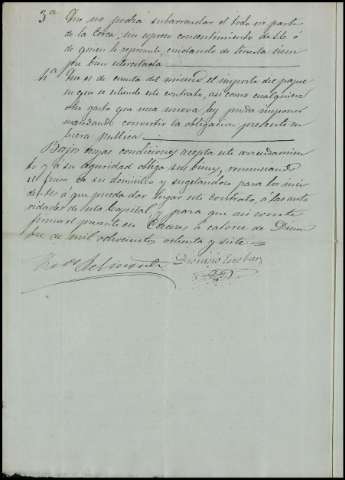 3ª Que no podrá subarrendar el todo ni parte
de la Cerca, sin espreso consentimiento de este ó
de quien le represente, cuidando de tenerla siem
pre bien intestada.
4ª Que es de cuenta del mismo el importe del papel
en que se estiende este contrato, así como cualquiera
otro gasto que una nueva ley pueda imponer
mandando convertir la obligacion presente en
escritura publica.
Bajo cuyas condiciones acepta este arrendamien
to y á su seguridad obliga sus bienes, renunciando
el fuero de su domicilio y sugetandose para los inciden
tes á que pueda dar lugar este contrato, á las auto
ridades de esta Capital, y para que asi conste
firma el presente en Cáceres á catorce de Diciem
bre de mil ochocientos ochenta y siete
Dionisio Escobar